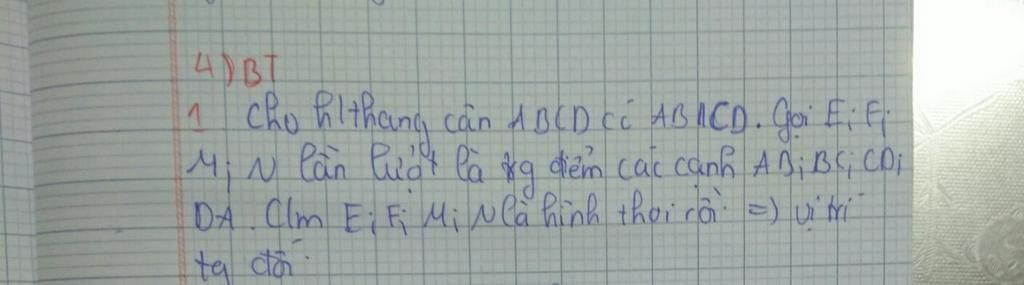 4) BT
1 Cho hìthang cân ABCD có AB//CD. Gọi E; F;
M; N lần lượt là trg điểm các cạnh AB; BC; CD;
DA. C/m E; F; M; N là hình thoi rồi => vị trí
tg đối